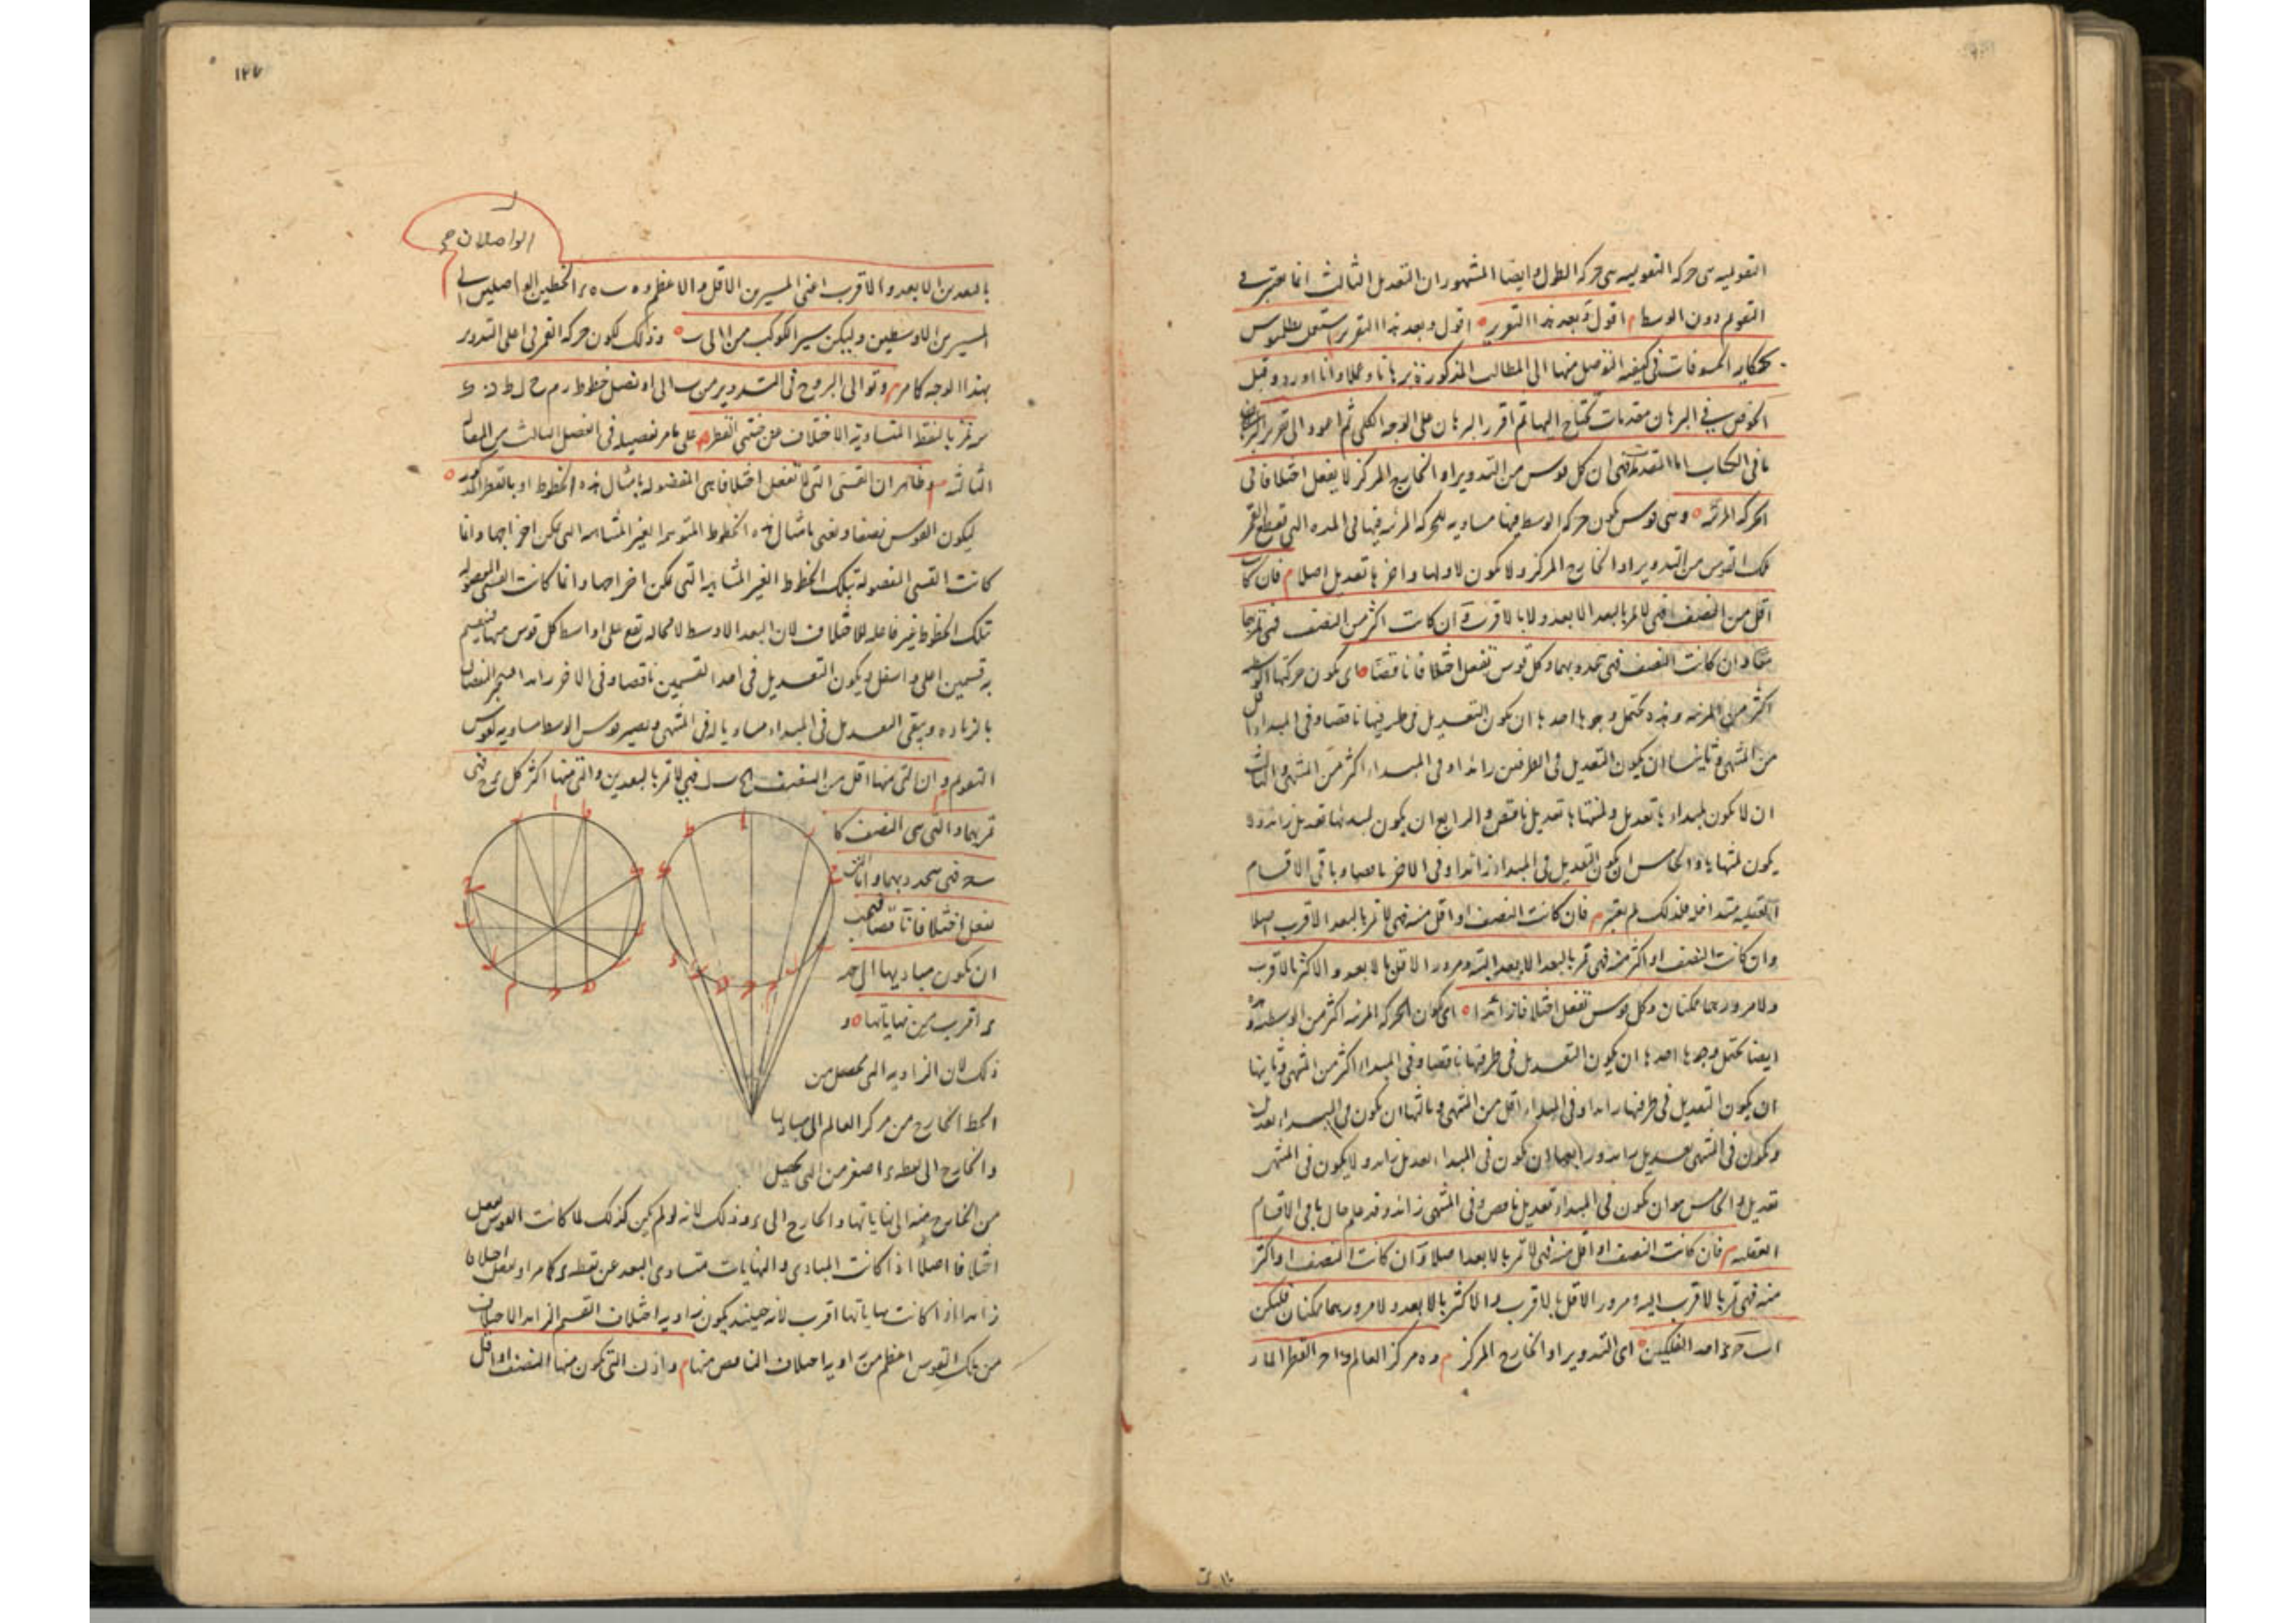 التقويمية هى حركة التقويمية هى حركة الطول وايضا المشهوران التعديل الثالث انما يعتبر فى
التقويم دون الوسط م اقول وبعد هذا التقرير ه اقول وبعد هذا التقرير يستعمل بطلميوس
الكسوفات فى كيفية التوصل منها الى المطالب المذكورة برهانا وعملا وانا اورد وقبل
الخوض فى البرهان مقدمات تحتاج اليها ثم اقرر البرهان على الوجه الكلى ثم اعود الى تقرير
ما فى الكتاب اما المقدمة فهى ان كل قوس من التدوير او الخارج المركز لا يفعل اختلافا فى
الحركة المرئية ه وهى قوس يكون حركة الوسط فيها مساوية للحركة المرئية فيها فى المدة التى تقطع القمر
تلك القوس من التدوير او الخارج المركز ولا يكون لاولها واخرها تعديل اصلا م فان كا
اقل من النصف فهى لا تمر بالبعد الابعد ولا بالاقرب وان كانت اكثر من النصف فهى تمر بهما
معا وان كانت النصف فهى تحد بهما وكل قوس تفعل اختلافا ناقصا ه اى يكون حركتها
اكثر من المرئية وهذه تحتمل وجوها احدها ان يكون التعديل فى طرفيها ناقصا وفى المبداء اقل
من المنتهى وثانيها ان يكون التعديل فى الطرفين زائدا وفى المبداء اكثر من المنتهى والثالث
ان لا يكون لمبداءها تعديل ولمنتهاها تعديل ناقص والرابع ان يكون لمبدئها تعديل زائد ولا
يكون لمنتهاها والخامس ان يكون التعديل فى المبداء زائدا وفى الاخر ناقصا وباقى الاقسام
العقلية متداخلة فلذلك لم يعتبر م فان كانت النصف او اقل منه فهى لا تمر بالبعد الاقرب اصلا
وان كانت النصف او اكثر منه فهى تمر بالبعد الابعد البتة ومرور الاقل بالابعد والاكثر بالاقرب
ولا مرورهما ممكنان وكل قوس تفعل اختلافا زائدا ه اى يكون الحركة المرئية اكثر من الوسطية وهذه
ايضا تحتمل وجوها احدها ان يكون التعديل فى طرفيها ناقصا وفى المبداء اكثر من المنتهى وثانيها
ان يكون التعديل فى طرفيها زائدا وفى المبداء اقل من المنتهى وثالثها ان يكون فى المبداء تعديل
ويكون فى المنتهى تعديل زائد ورابعها ان يكون فى المبداء تعديل زائد ولا يكون فى المنتهى
تعديل والخامس هو ان يكون فى المبداء تعديل ناقص وفى المنتهى زائد وقد علم حال باقى الاقسام
العقلية م فان كانت النصف او اقل منه فهى لا تمر بالابعد اصلا وان كانت النصف او اكثر
منه فهى تمر بالاقرب البتة ومرور الاقل بالاقرب والاكثر بالابعد ولا مرورهما ممكنان فليكن
احد الفلكين ه اى التدوير او الخارج المركز م وه مركز العالم القطر المار
١٢٧
الواصلان
بالبعدين الابعد والاقرب اعنى المسيرين الاقل والاعظم الخطين الواصلين الى
المسيرين الاوسطين وليكن سير الكوكب من ا الى ب ه وذلك لكون حركة القمر فى اعلى التدوير
بهذا الوجه كما مر م وتوالى البروج فى التدوير من ب الى ا ونصل خطوط
تمر بالنقط المتساوية الاختلاف عن جنبتى القطر م على ما مر تفصيله فى الفصل الثالث من المقالة
الثالثة م وظاهر ان القسى التى لا تفعل اختلافا هى المفصولة بامثال هذه الخطوط او بالقطر ه
ليكون القوس نصفا ونعنى بامثال هذه الخطوط الغير المتناهية التى يمكن اخراجها وانما
كانت القسى المفصولة بتلك الخطوط الغير المتناهية التى يمكن اخراجها وانما كانت القسى المفصولة
بتلك الخطوط غير فاعلة للاختلاف لان البعد الاوسط لا محالة تقع على اواسط كل قوس منها فينقسم
به قسمين اعلى واسفل ويكون التعديل فى احد القسمين ناقصا وفى الاخر زائدا فينجبر النقصان
بالزيادة ويبقى التعديل فى المبداء مساويا له فى المنتهى ويصير قوس الوسط مساوية لقوس
التقويم م وان التى منها اقل من النصف فهى لا تمر بالبعدين والتى منها اكثر فهى
تمر بهما والتى هى النصف كا
فهى تتحدد بهما وان التى
تفعل اختلافا ناقصا فيجب
ان يكون مباديها الى
اقرب من نهاياتها ه و
ذلك لان الزاوية التى تحصل من
الخط الخارج من مركز العالم الى مباديها
والخارج الى نقطة اصغر من التى تحصل
من الخارج منه الى نهاياتها والخارج الى ى وذلك لانه لو لم يكن كذلك لما كانت القوس تفعل
اختلافا اصلا اذا كانت المبادى والنهايات متساوى البعد عن نقطة ى كما مر او تفعل اختلافا
زائدا اذا كانت نهاياتها اقرب لانه حينئذ يكون زاوية اختلاف القسم الزائد الاختلاف
من تلك القوس اعظم من زاوية اختلاف الناقص منها م وان التى يكون منها النصف او اقل